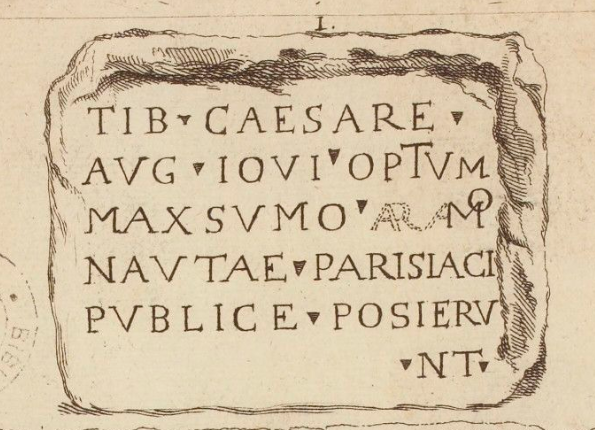 1.
TIB▾CAESARE▾
AVG▾IOVI▾OPTVM
O
MAXSVMO▾ARAM
NAVTAE▾PARISIACI
PVBLICE▾POSIERV
▾NT▾